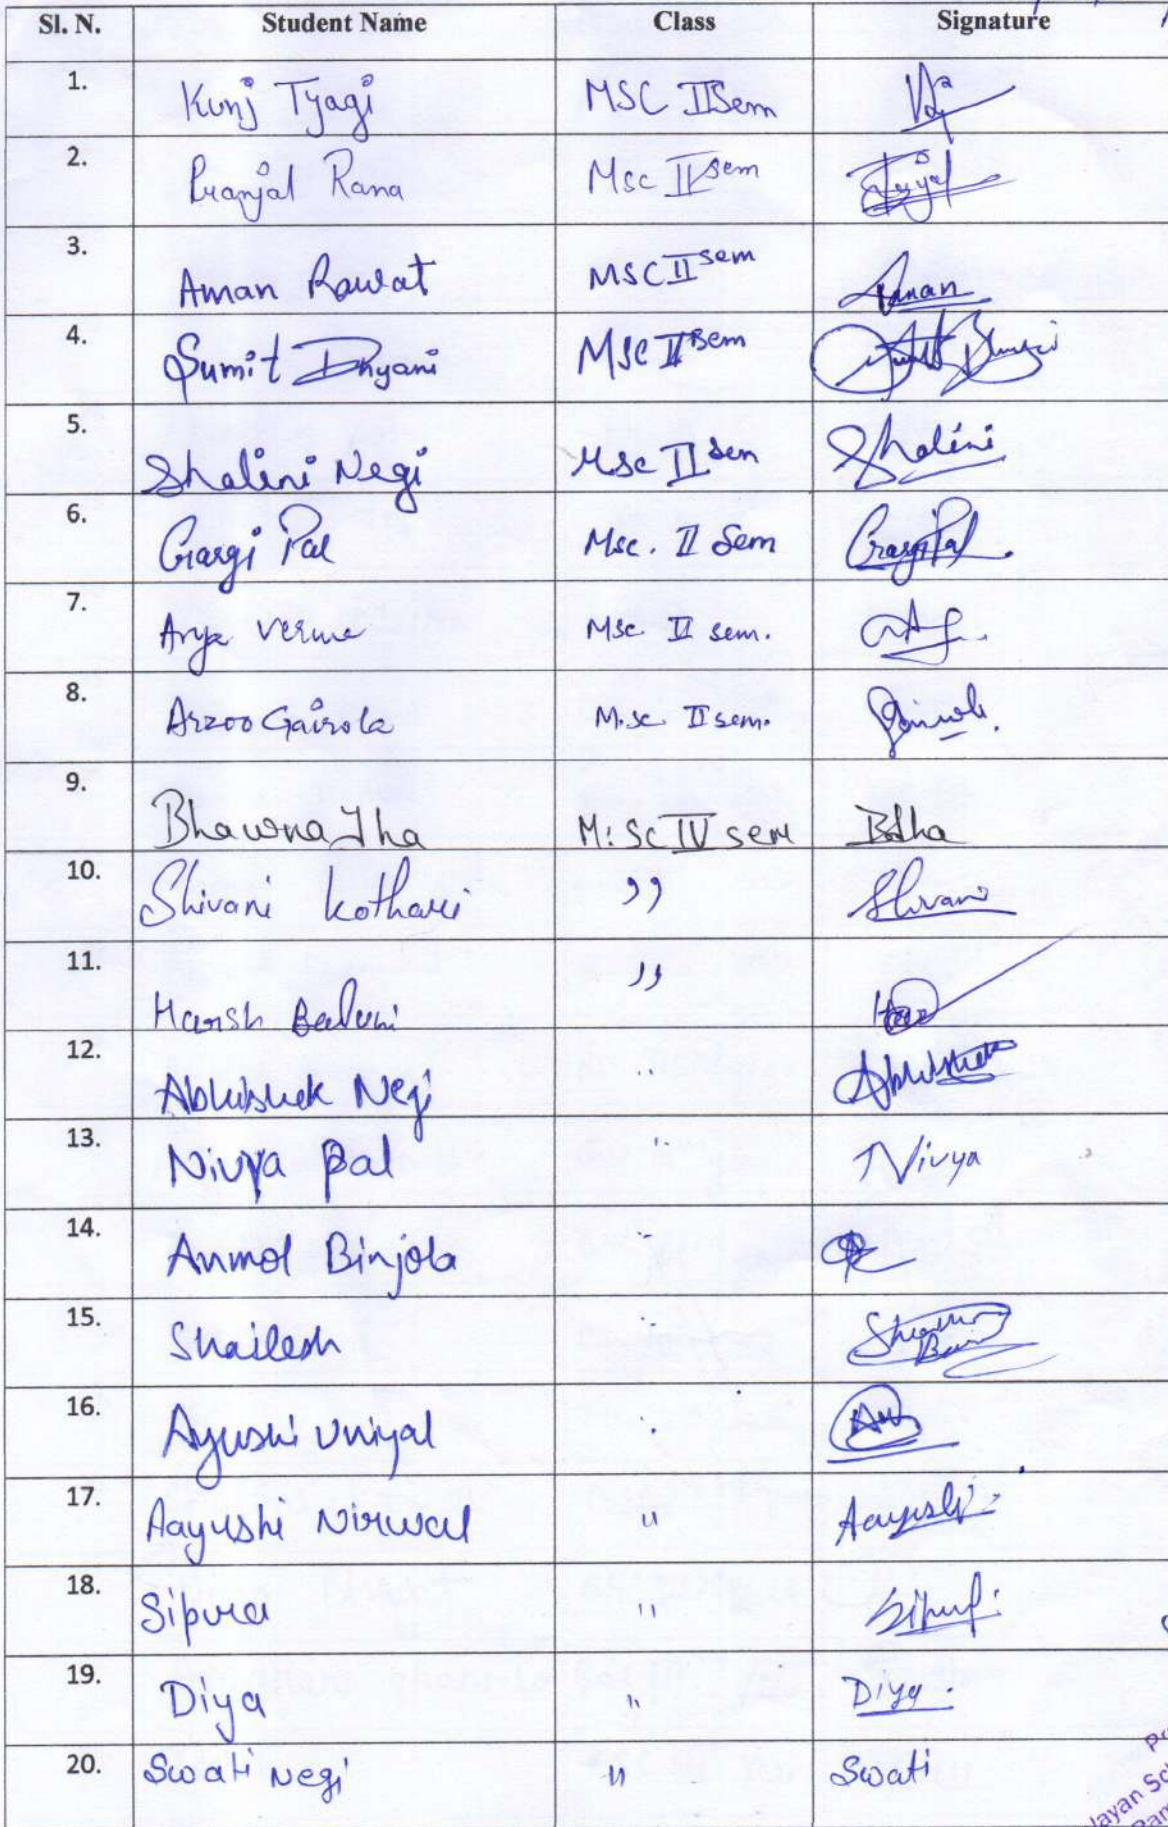 Sl. N. Student Name Class Signature
1. Kunj Tyagi MSC II Sem
2. Pranjal Rana Msc II sem
3. Aman Rawat MSC II sem Aman
4. Sumit Dhyani MSC II sem
5. Shalini Negi Msc II sem Shalini
6. Gargi Pal Msc. II Sem Gargi Pal
7. Arya Verma Msc. II sem.
8. Arzoo Gairola M.sc. II sem.
9. Bhawna Jha M.Sc IV sem BJha
10. Shivani Kothari ,, Shivani
11. Harsh Baluni ,,
12. Abhishek Negi " Abhishek
13. Nivya Pal " Nivya
14. Anmol Binjola "
15. Shailesh "
16. Ayushi Uniyal "
17. Aayushi Nirwal " Aayushi
18. Sipra "
19. Diya " Diya.
20. Swati Negi " Swati